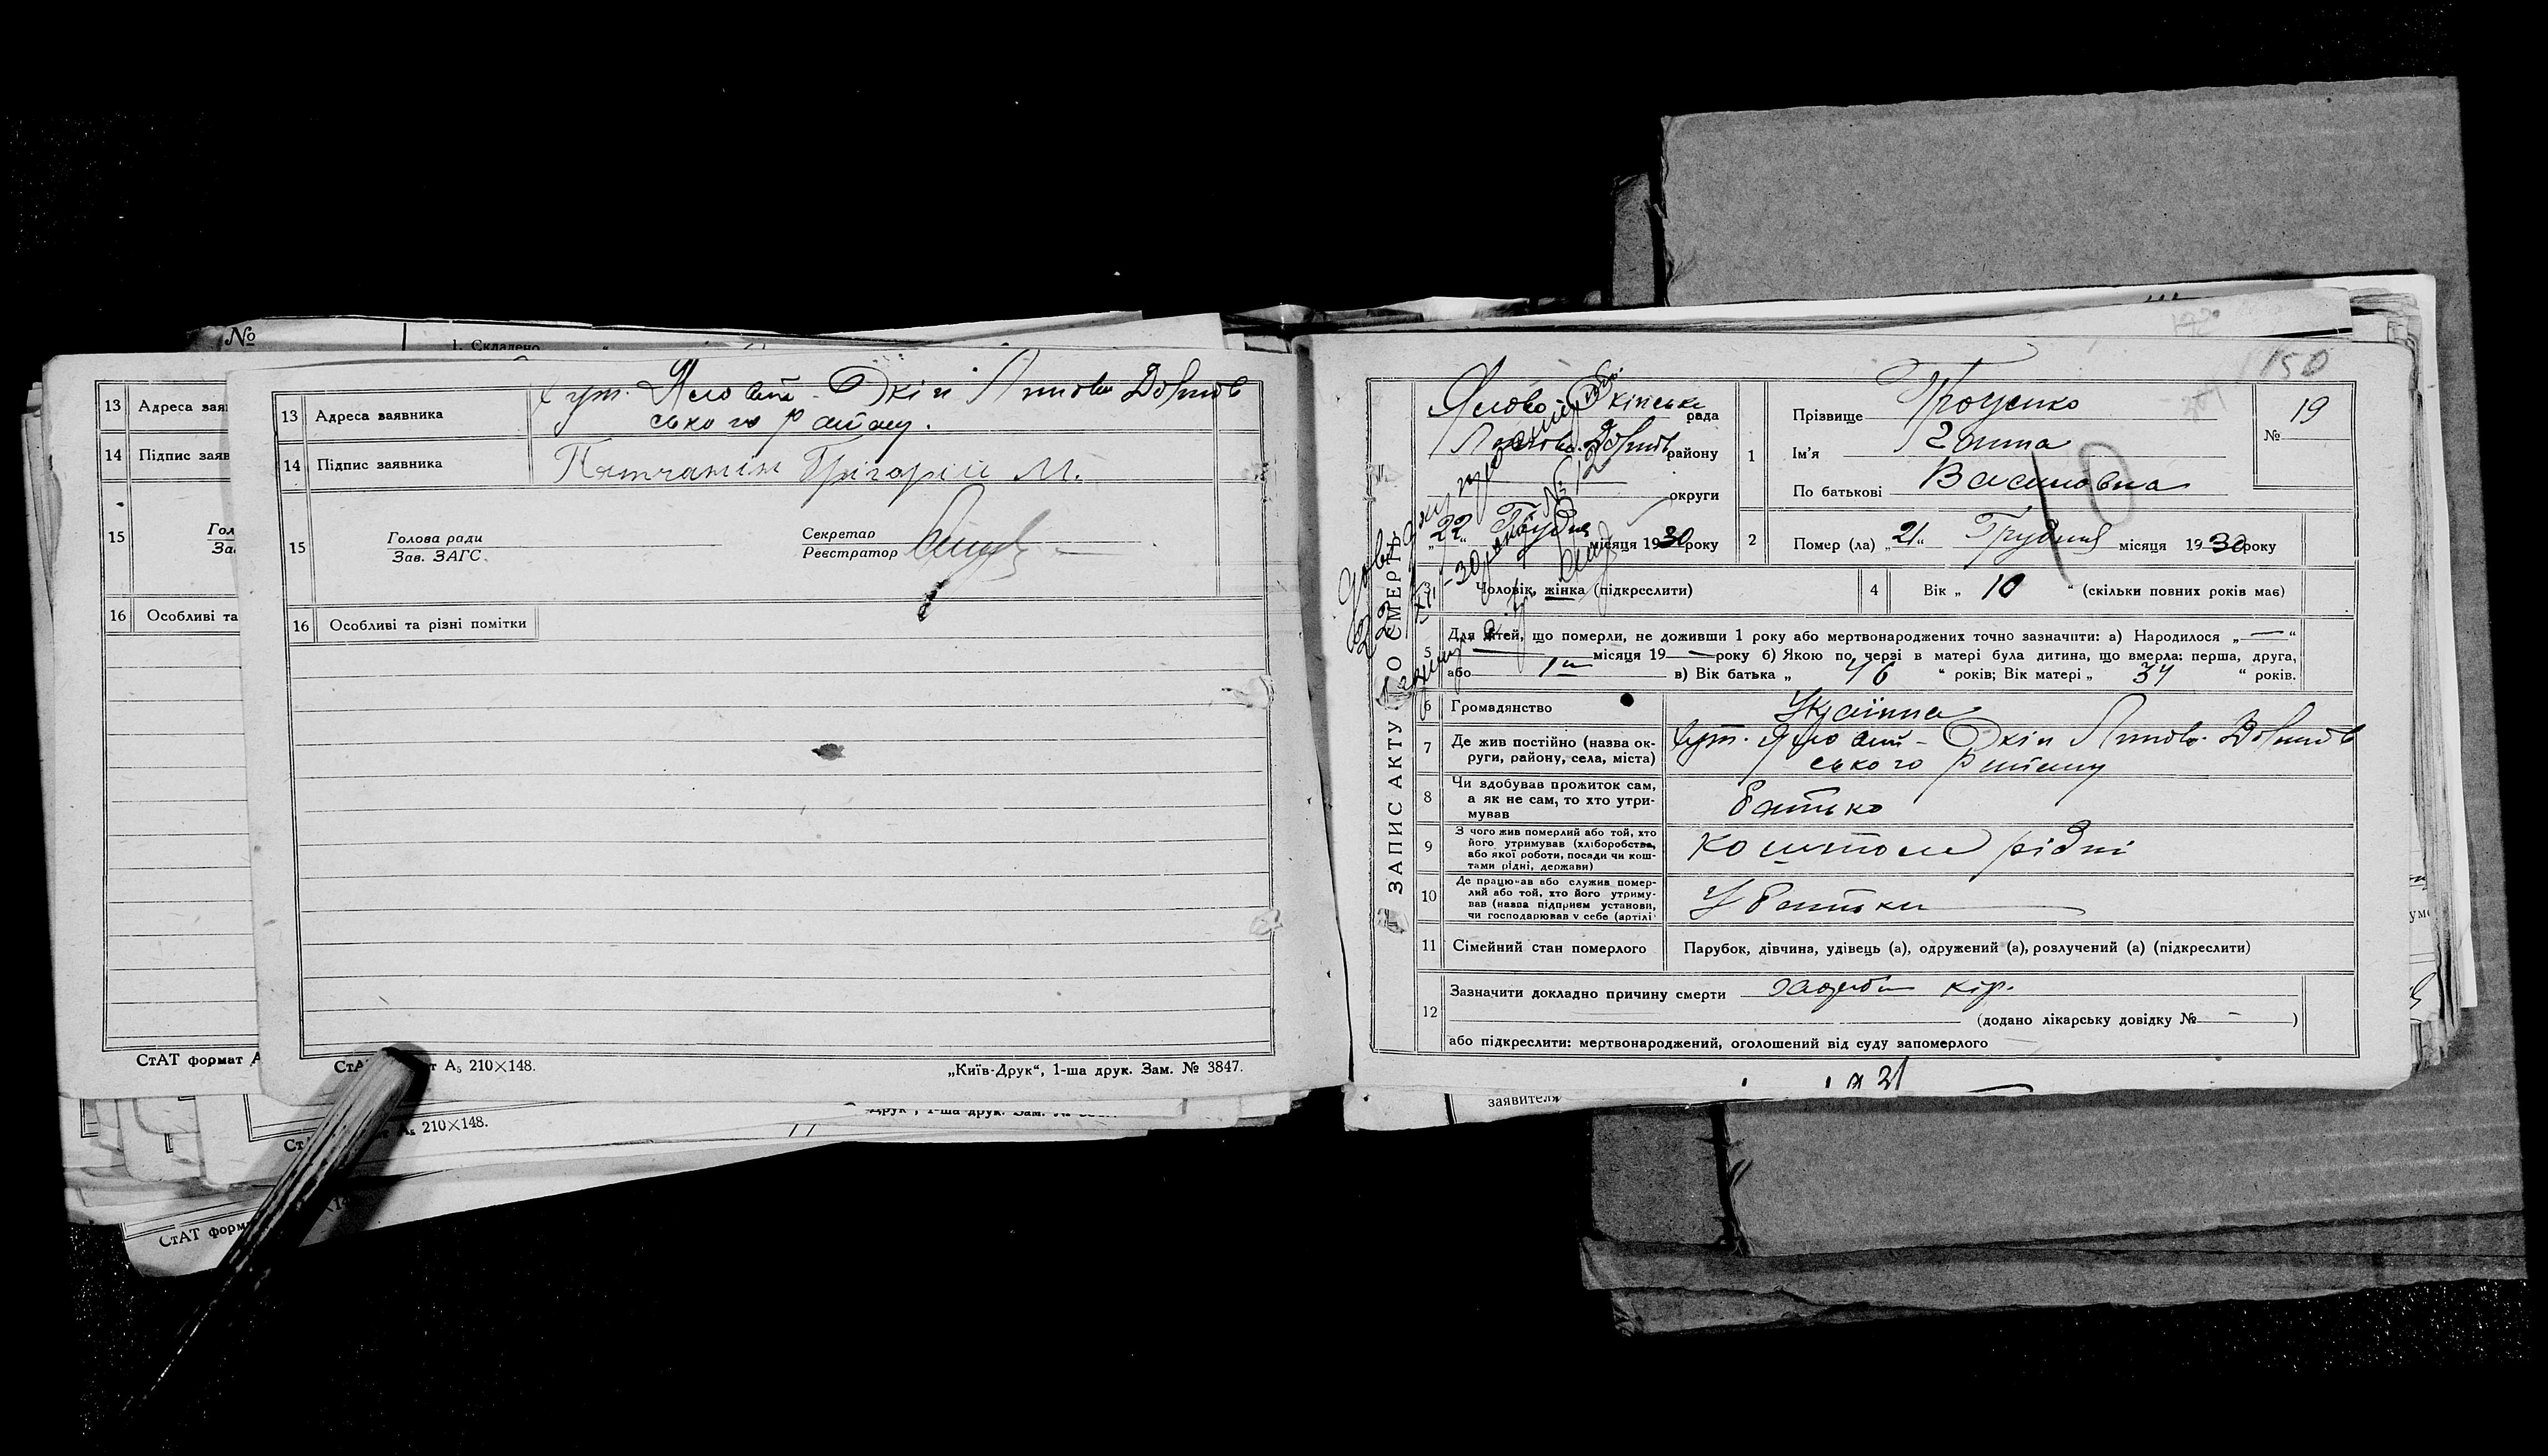 №
1. Складено
13 Адреса зая
14 Підпис заяв
15
16 Особливі та
СтАТ формат А
13 Адреса заявника
хут. Яловий-Окіп Липово Долинсь
ського району.
14 Підпис заявника Григорій М.
15 Голова ради
Зав. ЗАГС.
Секретар
Реєстратор
16 Особливі та різні помітки
т А₅ 210×148.
„Київ-Друк“, 1-ша друк. Зам. № 3847.
210×148.
СтАТ форм
150
ЗАПИС АКТУ ПРО СМЕРТЬ
рада
району
округи
„22“ Грудня місяця 1930 року
1 Прізвище Троценко
Ім'я Ганна
По батькові Василовна
№ 19
2 Помер (ла) „21“ Грудня місяця 1930 року
3 Чоловік, жінка (підкреслити)
4 Вік „ 10 “ (скільки повних років має)
5 Для дітей, що померли, не доживши 1 року або мертвонароджених точно зазначити: а) Народилося „—“
місяця 19 — року б) Якою по черзі в матері була дитина, що вмерла: перша, друга,
або в) Вік батька „ 46 “ років; Вік матері „ 34 “ років.
6 Громадянство Українка
7 Де жив постійно (назва ок-
руги, району, села, міста)
хут. Яловий-Окіп Липово-Долинсь
ського району
8 Чи здобував прожиток сам,
а як не сам, то хто утри-
мував
батько
9 З чого жив померлий або той, хто
його утримував (хліборобства,
або якої роботи, посади чи кош-
тами рідні, держави)
коштом рідні
10 Де працював або служив помер-
лий або той, хто його утриму-
вав (назва підприєм установи,
чи господарював у себе (артілі
У батьки
11 Сімейний стан померлого Парубок, дівчина, удівець (а), одружений (а), розлучений (а) (підкреслити)
12 Зазначити докладно причину смерти кір.
(додано лікарську довідку № — )
або підкреслити: мертвонароджений, оголошений від суду запомерлого
заявителя